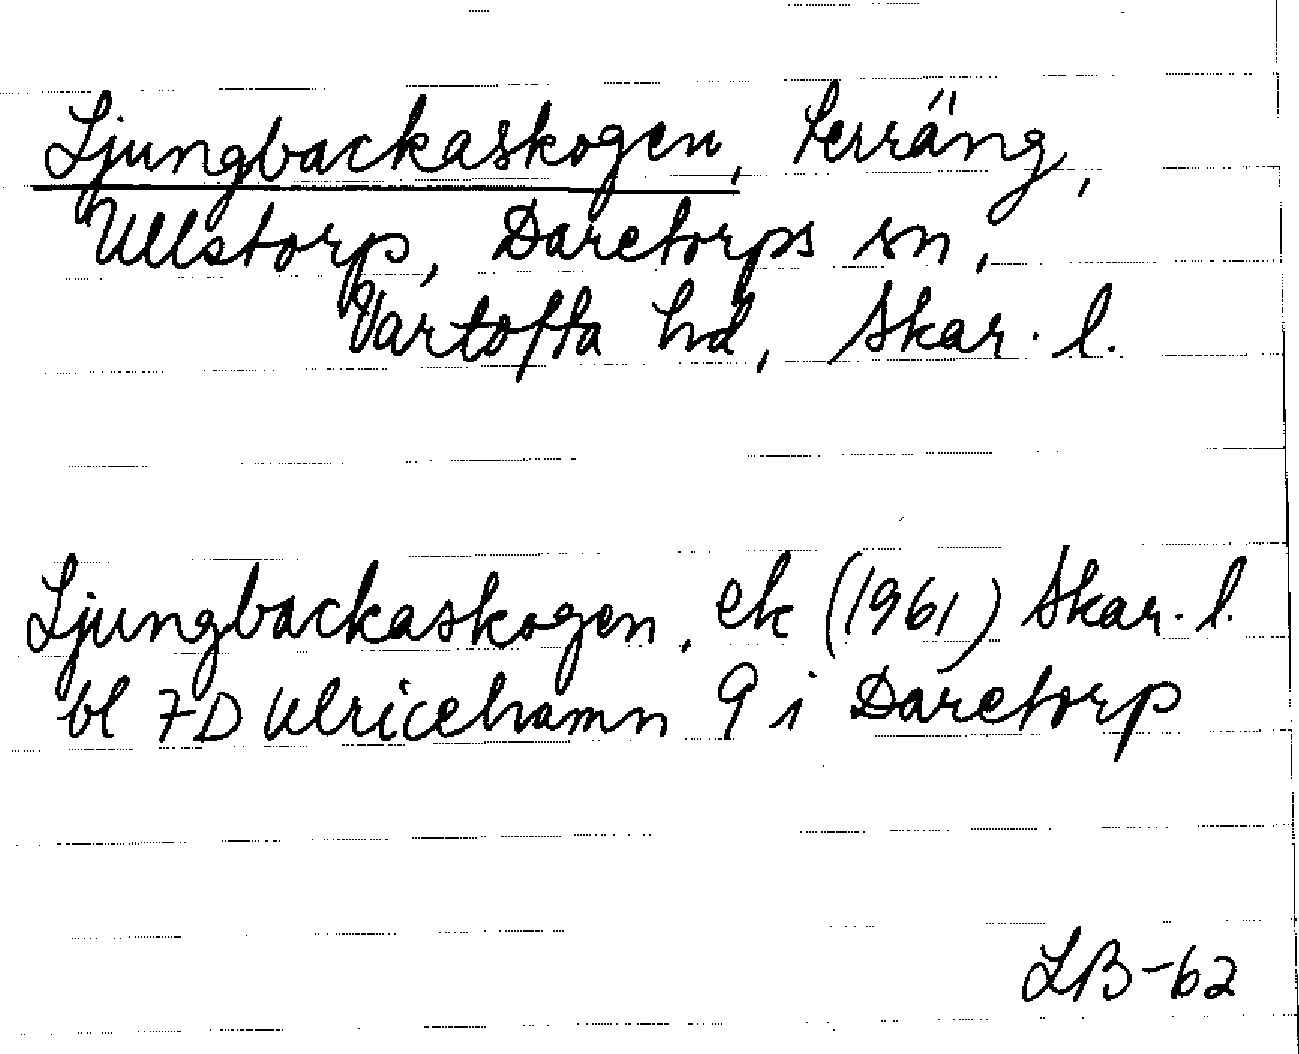 Ljungbackaskogen, terräng,
Ullstorp, Daretorps sn,
Vartofta hd, Skar. l.
Ljungbackaskogen, ek (1961) Skar. l.
bl 7D Ulricehamn 9 i Daretorp
LB-62